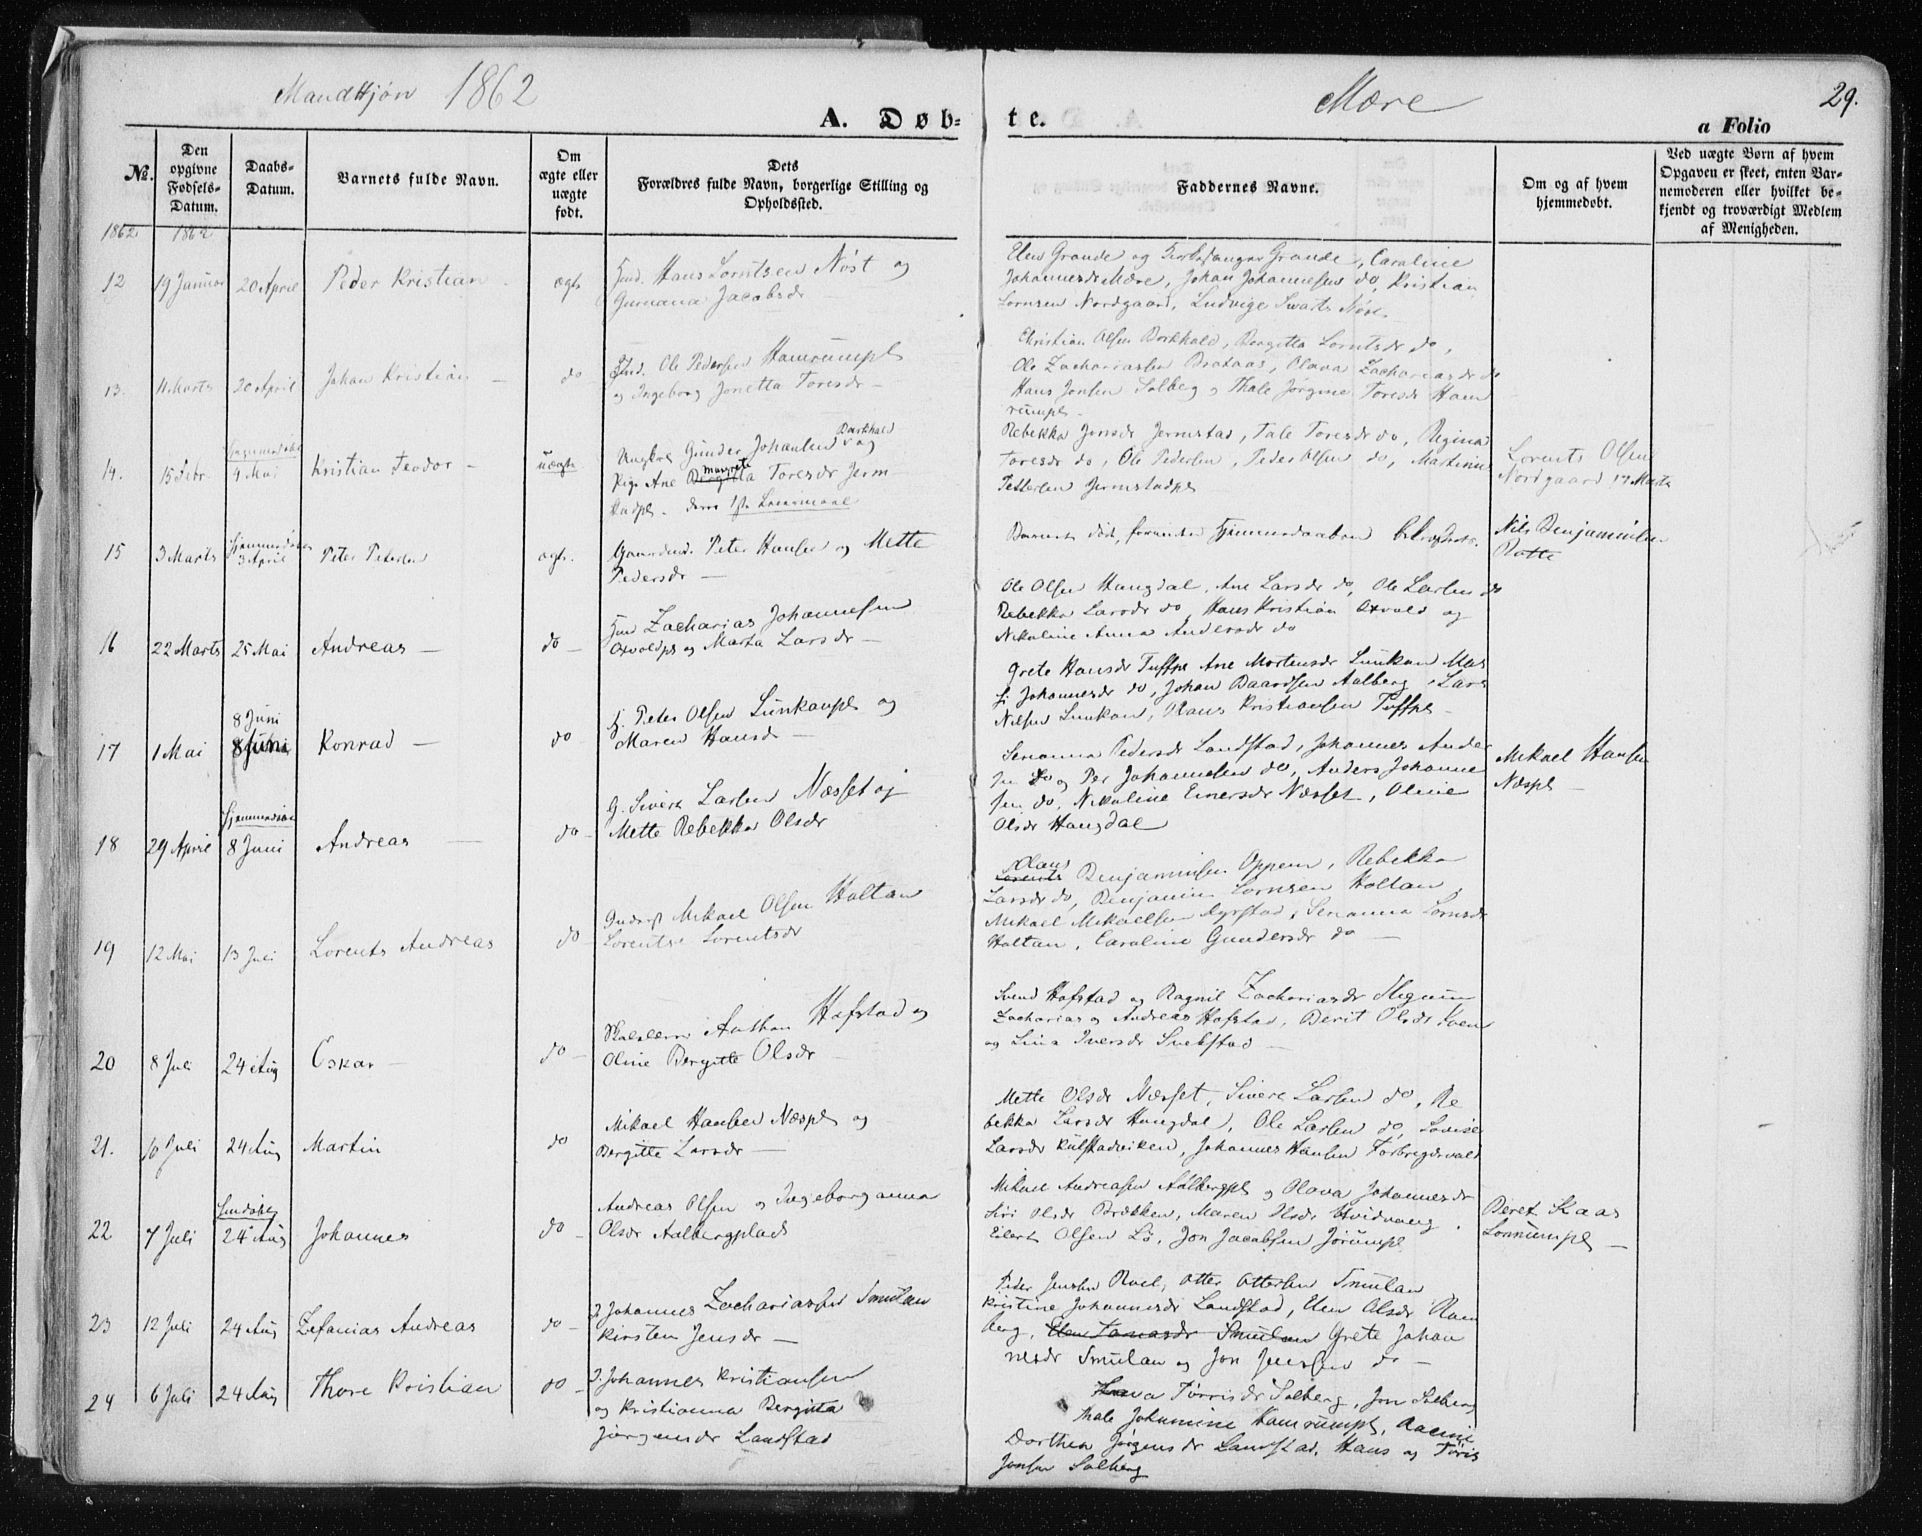 Mandkjøn 1862
Mære
29.
A. Døb-
te.
a Folio
№.
Den opgivne Fødsels-Datum.
Daabs-Datum.
Barnets fulde Navn.
Om ægte eller uægte født.
Dets Forældres fulde Navn, borgerlige Stilling og Opholdssted.
Faddernes Navne.
Om og af hvem hjemmedøbt.
Ved uægte Børn af hvem Opgaven er skeet, enten Barnemoderen eller hvilket bekjendt og troværdigt Medlem af Menigheden.
1862 1862
12 19 Januar 20 April Peder Kristian ægte
Hans Lorntsen Nøst og
Gurnana Jacobsdr
Elen Grande og Kirkesanger Grande, Caroline
Johannesdr Mære, Johan Johannesen do, Kristian
Lornsen Nordgaard, Ludvige Swarts Nøst
13. 11 Marts 20 April Johan Kristian do
Ole Pedersen Hamrumpl
og Ingeborg Jonetta Toresdr
Christian Olsen Barkhald, Bergitta Lorntsdr do,
Ole Zachariassen Brataas, Olava Zachariasdr do
Hans Jonsen Solberg og Thale Jørgine Toresdr Ham
rumpl
14. 15 Febr. hjemmedøbt 4 Mai Kristian Teodor uægte
Ungkrl Gunder Johansen Barkhald og
Pige Ane Margrete Toresdr Jerm
stadpl. deres 1ste Leiermaal
Rebekka Jonsdr Jermstad, Tale Toresdr do, Regina
Toresdr do, Ole Pedersen, Peder Olsen do, Martinus
Pettersen Jermstadpl
Lorents Olsen
Nordgaard 17 Marts
15 3 Marts hjemmedøbt 3 April Peter Petersen ægte
Gaardmd. Peter Hansen og Mette
Pedersdr
Barnet død, forinden Hjemmedaaben bekræftet.
Nils Benjaminsen
Rotte
16 22 Marts 25 Mai Andreas do
Hmd Zacharias Johannesen
Oxvoldpl og Marta Larsdr
Ole Olsen Haugdal, Ane Larsdr do, Ole Larsen do
Rebekka Larsdr do, Hans Kristian Oxvold og
Nikoline Anna Andersdr do
17 1 Mai 8 Juni 8 Juni Konrad do
Peter Olsen Lunkanpl og
Maren Hansdr
Grete Hansdr Tuffpl Ane Mortensdr Lunkan Mar
Johannesdr do, Johan Baardsen Aalberg, Lars
Nilsen Lunkan, Hans Kristiansen Tuffpl
18 29 April hjemmedøbt 8 Juni Andreas do
G. Sivert Larsen Næsset og
Mette Rebekka Olsdr
Serianna Pedersdr Landstad, Johannes Ander
sen do og Per Johannesen do, Anders Johanne
sen do, Nikoline Einersdr Næsset, Oline
Olsdr Haugdal
Mikael Hansen
Næspl
19 12 Mai 13 Juli Lorents Andreas do
Inderst Mikael Olsen Holtan
Lorentse Lorentsdr
Olaus Benjaminsen Oppem, Rebekka
Larsdr do, Benjamin Lornsen Holtan,
Mikael Mikaelsen Kyrstad, Serianna Lornsdr
Holtan, Caroline Gundersdr do
20 8 Juli 24 Aug Oskar do
Skolelærer Anthon Hofstad og
Oline Bergitte Olsdr
Svend Hofstad og Ragnil Zachariasdr
Zacharias og Andreas Hofstad, Berit Olsdr Kven
og Lina Iversdr Sulstad
21. 10 Juli 24 Aug Martin do
Mikael Hansen Næspl og
Bergitte Larsdr
Mette Olsdr Næsset, Sivert Larsen do, Re
bekka Larsdr Haugdal, Ole Larsen do, Lovise
Larsdr Kulstadviken, Johannes Hansen Forbregdsvald
22 7 Juli 24 Aug Johannes do
Andreas Olsen og Ingeborganna
Olsdr Aalbergplads
Mikael Andreasen Aalbergpl og Olava Johannesdr
Siri Olsdr Brækken, Maren Olsdr Hvidvang,
Eilert Olsen Lø, Jon Jacobsen Jørumpl
Beret Kaas
23 12 Juli 24 Aug Zefanias Andreas do
Johannes Zachariassen Smulan
Kirsten Jensdr
Peder Jensen Roel, Otter Ottersen Smulan
Kristine Johannesdr Landstad, Elen Olsdr Ram
berg, Elen Tomasdr Smulan Grete Johan
nesdr Smulan og Jon Jensen do
24 6 Juli 24 Aug Thore Kristian do
Johannes Kristiansen
og Kristianna Bergitta
Jørgensdr Landstad
Lava Tørrisdr Solberg, Jon Solberg
Thale Johannine Hamrumpl,
Dorthea Jørgensdr Landstad, Hans og Tøris
Jonsen Solberg